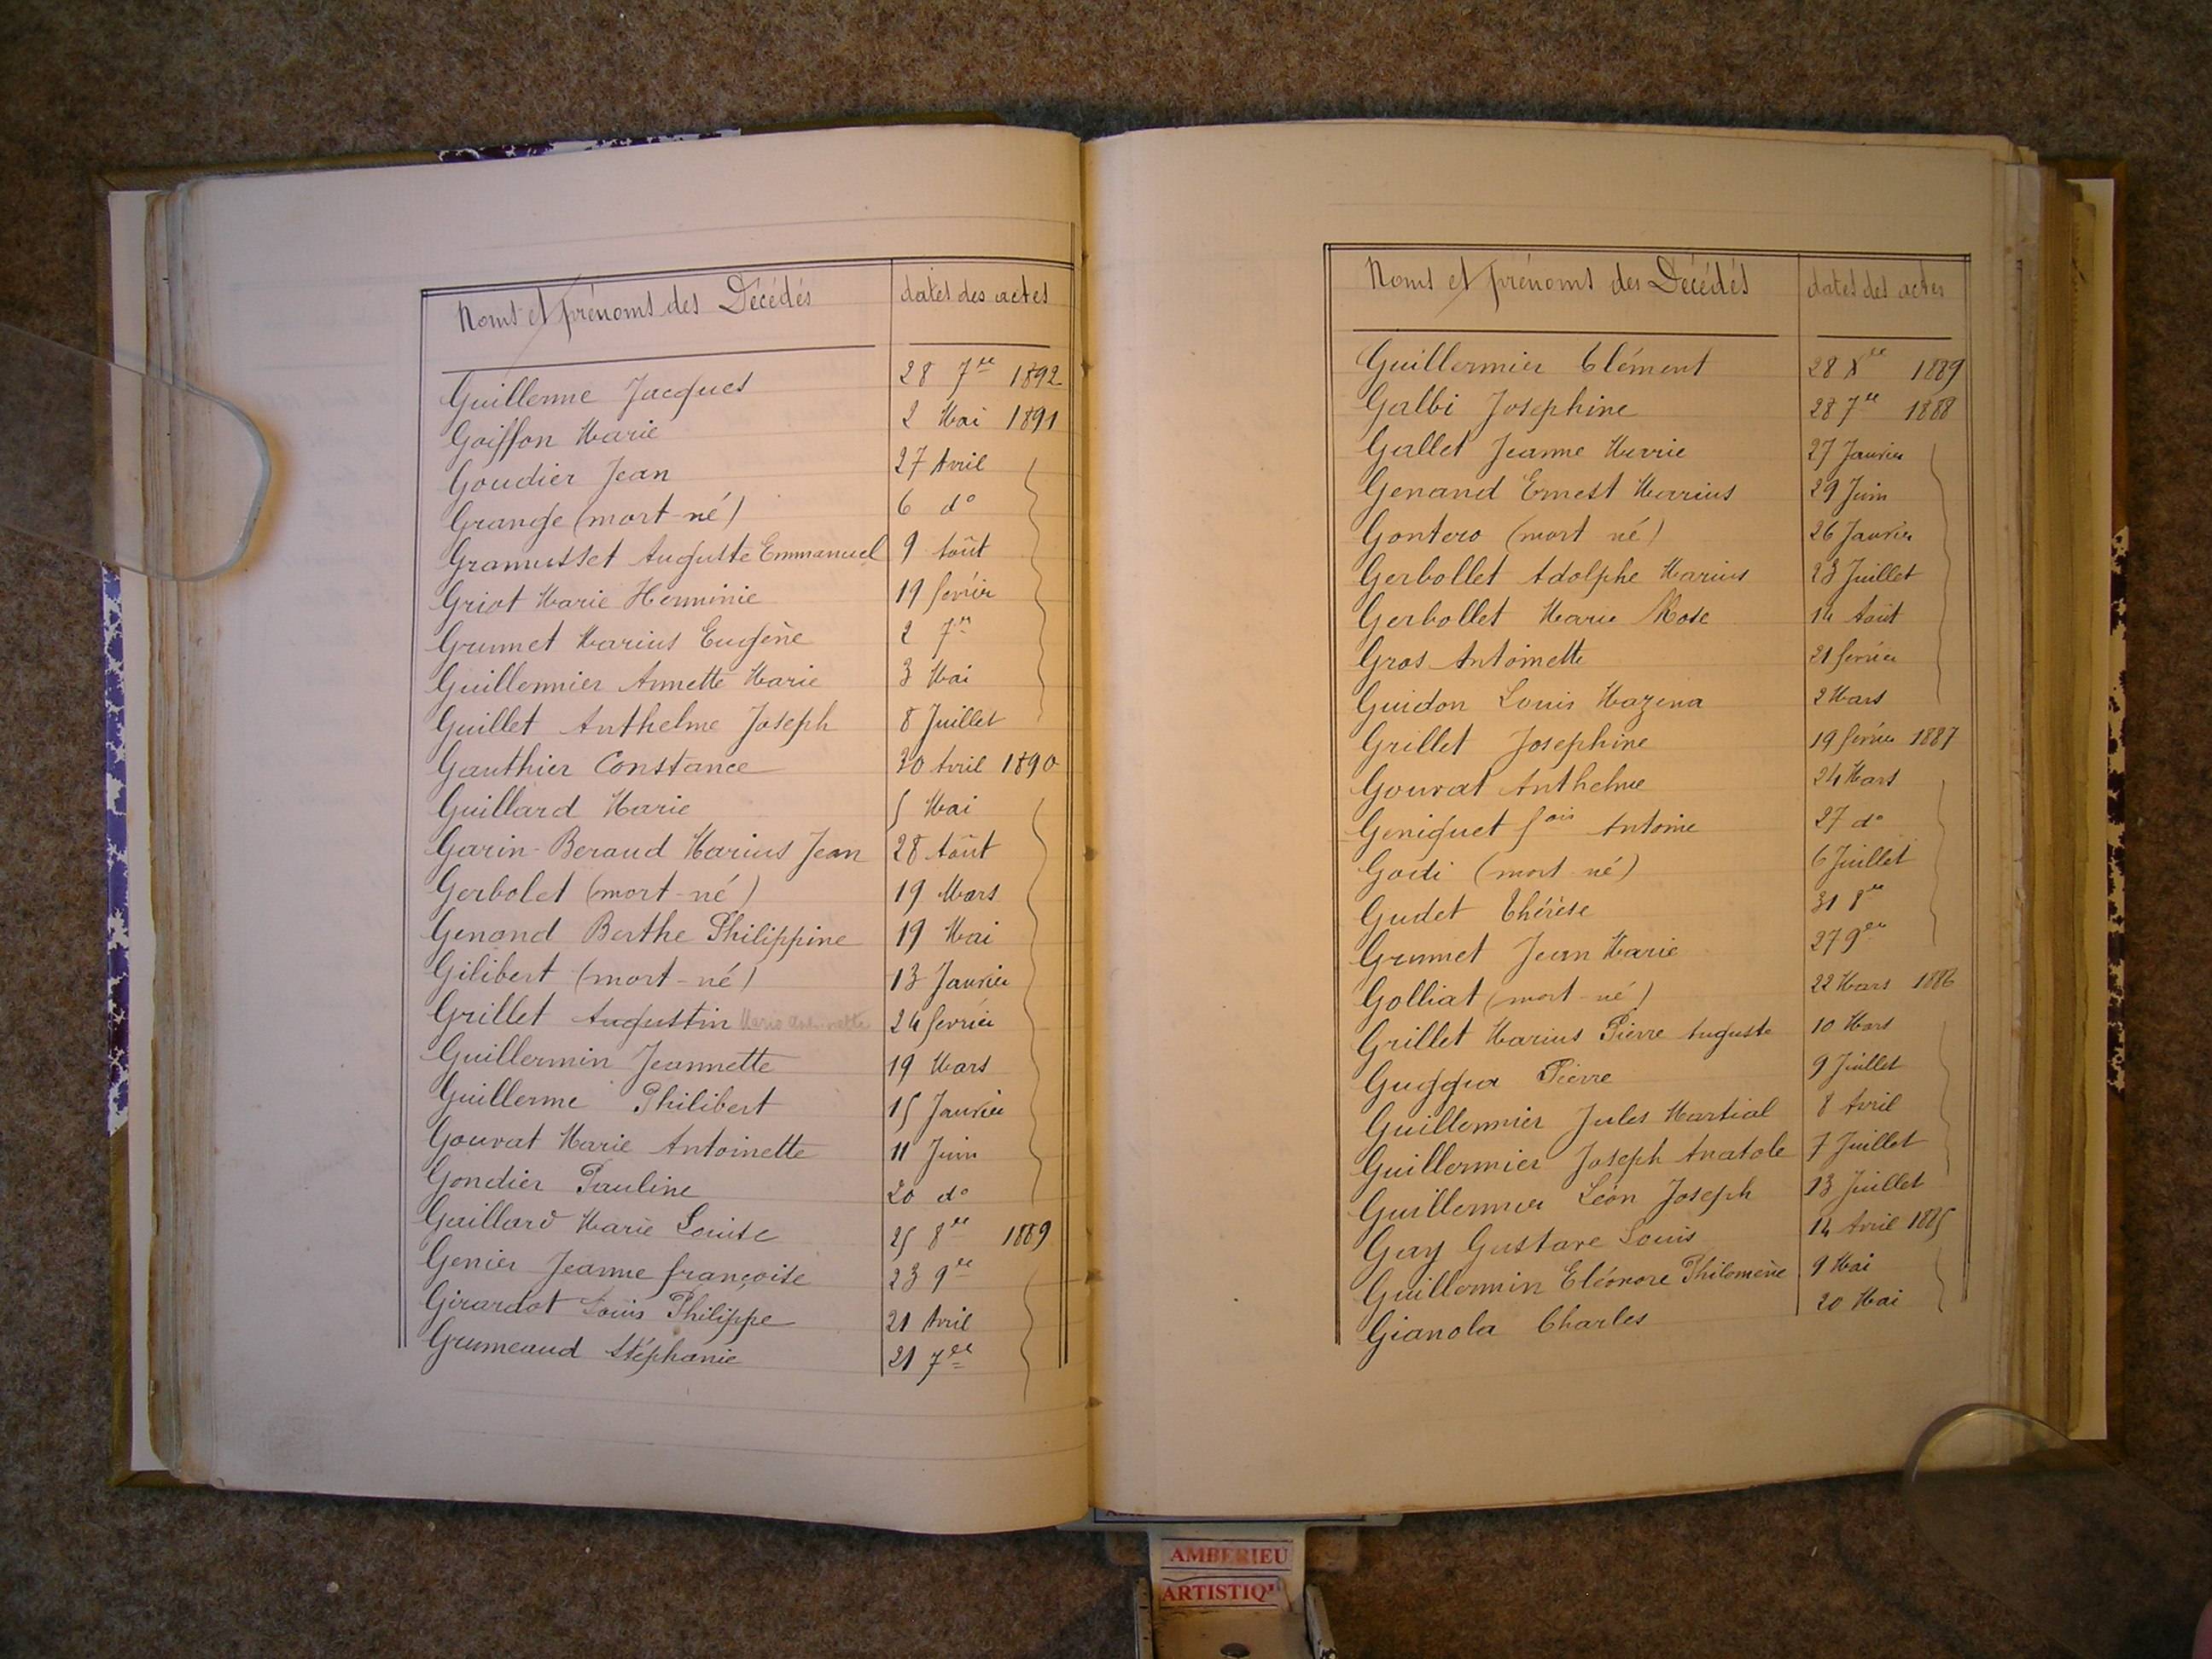 Noms et prénoms des Décédés dates des actes
Guillerme Jacques 28 7re 1892
Goiffon Marie 2 Mai 1891
Goudier Jean 27 Avril
Grange (mort-né) 6 do
Gramusset Auguste Emmanuel 9 Août
Griot Marie Herminie 19 février
Grumet Marius Eugène 2 7re
Guillermier Annette Marie 3 Mai
Guillet Anthelme Joseph 8 Juillet
Gauthier Constance 30 Avril 1890
Guillard Marie 5 Mai
Garin-Beraud Marius Jean 28 Août
Gerbolet (mort-né) 19 Mars
Genand Berthe Philippine 19 Mai
Gilibert (mort-né) 13 Janvier
Grillet Augustin Marie Antoinette 24 février
Guillermin Jeannette 19 Mars
Guillerme Philibert 15 Janvier
Gouvat Marie Antoinette 11 Juin
Gondier Pauline 20 do
Gaillard Marie Louise 25 8re 1889
Genier Jeanne françoise 23 9re
Girardot Louis Philippe 21 Avril
Grumeaud Stéphanie 21 7re
Noms et prénoms des Décédés dates des actes
Guillermier Clément 28 Xre 1889
Galbi Josephine 28 7re 1888
Gallet Jeanne Marie 27 Janvier
Genand Ernest Marius 29 Juin
Gontero (mort né) 26 Janvier
Gerbollet Adolphe Marius 23 Juillet
Gerbollet Marie Rose 14 Août
Gros Antoinette 21 février
Guidon Louis Mazena 2 Mars
Grillet Josephine 19 février 1887
Gouvat Anthelme 24 Mars
Geniquet fois Antoine 27 do
Godi (mort-né) 6 Juillet
Gudet Thérèse 31 8re
Grumet Jean Marie 27 9re
Golliat (mort-né) 22 Mars 1886
Grillet Marius Pierre Auguste 10 Mars
Guggia Pierre 9 Juillet
Guillermier Jules Martial 8 Avril
Guillermier Joseph Anatole 7 Juillet
Guillermier Léon Joseph 13 Juillet
Gay Gustave Louis 14 Avril 1885
Guillermin Eléonore Philomène 9 Mai
Gianola Charles 20 Mai
AMBERIEU
ARTISTIQ